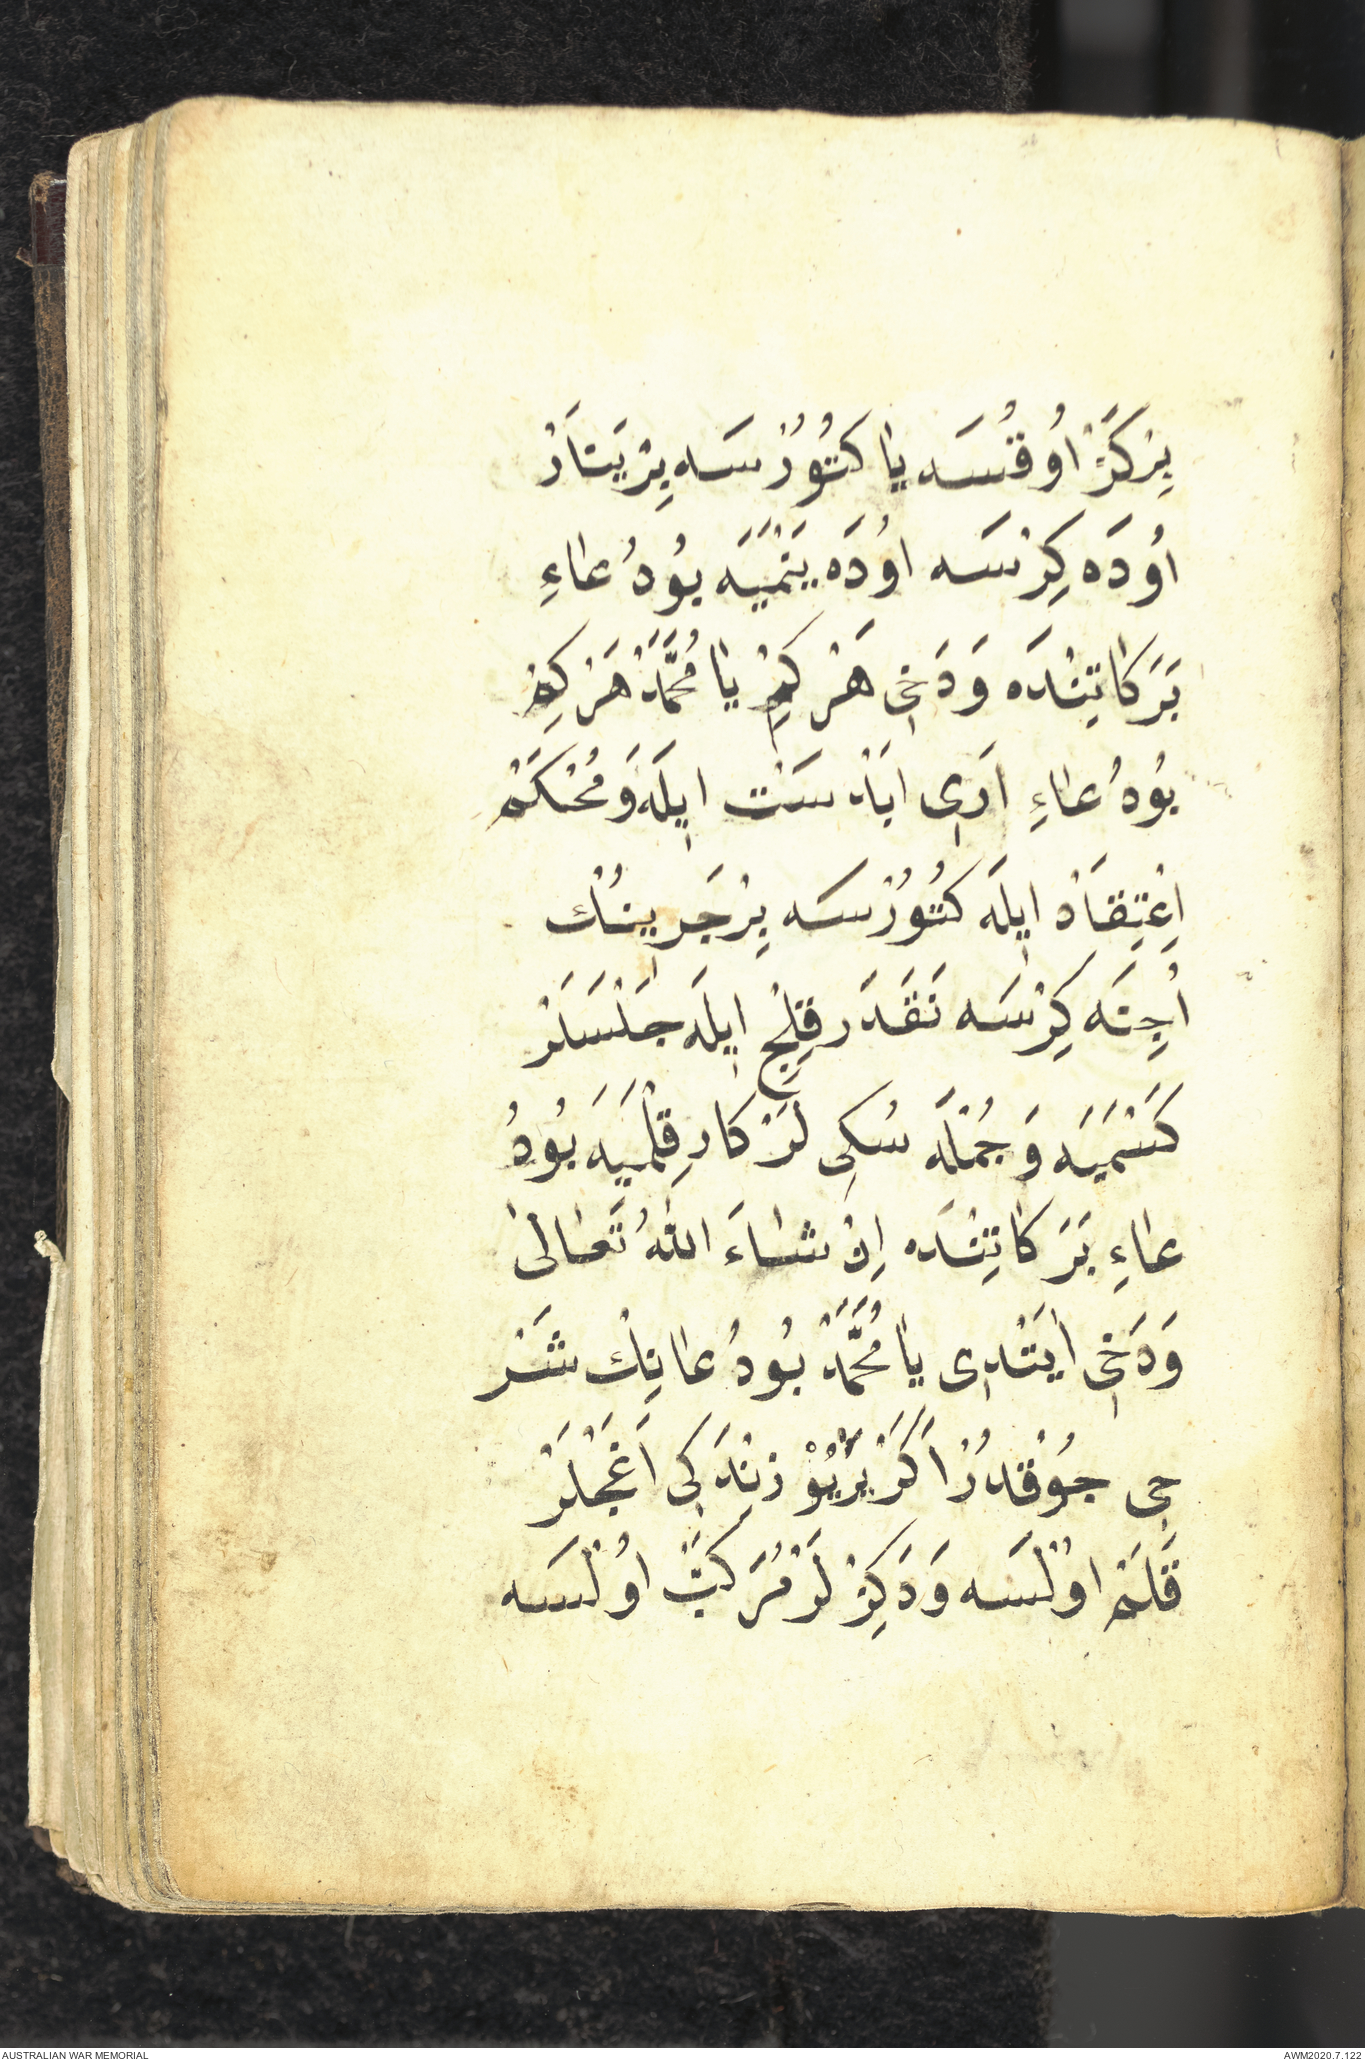 بِرْكَزْ اُوقُسَه يا كتُورُسَه بِرْيَتَارْ
اُودَه كِرْسَه اودَه يَنْمَيَه بُودُعاءِ
بَرَكاتِنْدَه وَدَخِى هَرْكِمْ يا مُحَمَّدْ هَرْكِمْ
بُودُعاءِ اَرِى اَبْدَسَتْ ايلَه وَمُحْكَمْ
اِعْتِقَادْ ايلَه كتُورُسَه بِرْجَرِينُكْ
اُچِنَه كِرْسَه نَقَدَر قِلِجْ ايلَه جَلْسَلَرْ
كَسْمَيَه وَجُمْلَه سُكِى لَرْ كارِ قِلْمَيَه بُودُ
عاءِ بَرَكاتِنْدَه اِنْ شاءَ اللّٰهُ تَعَالىٰ
وَدَخِى ايتْدِى يا مُحَمَّدْ بُودُعانِكْ شَرْ
حِى جُوقدُرْ اَكَرْ يَرْيُوزِنْدَكِى اَغَجْلَرْ
قَلَمْ اولْسَه وَدَكِزْلَرْ مُرَكَّبْ اُولْسَه
AUSTRALIAN WAR MEMORIAL
AWM2020.7.122